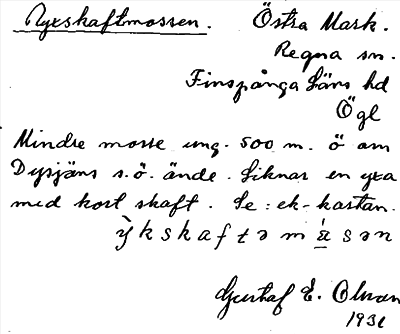 Yxskaftmossen. Östra Mark.
Regna sn.
Finspånga läns hd
Ögl
Mindre mosse ung. 500 m. ö om
Dysjäns s.ö. ände. Liknar en yxa
med kort skaft. Se: ek-kartan.
ỳkskaftəmåsən
Gustaf E.
1931